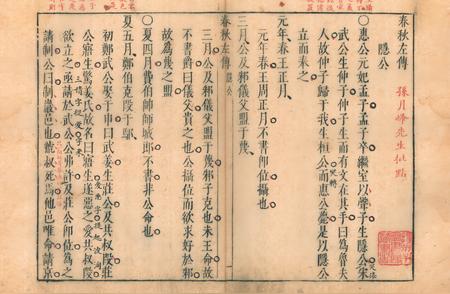 春秋左傳
隱公
孫月峰先生批點
○惠公元妃孟子孟子卒繼室以聲子生隱公宋
武公生仲子仲子生而有文在其手曰爲魯夫
人故仲子歸于我生桓公而惠公薨是以隱公
立而奉之
元年春王正月
元年春王周正月不書卽位攝也
三月公及邾儀父盟于蔑
春秋左傳 隱公
三月公及邾儀父盟于蔑邾子克也未王命故
不書爵曰儀父貴之也公攝位而欲求好於邾
故爲蔑之盟
○夏四月費伯帥師城郎不書非公命也
夏五月鄭伯克段于鄢
初鄭武公娶于申曰武姜生莊公及共叔段莊
公寤生驚姜氏故名曰寤生遂惡之愛共叔段
欲立之亟請於武公公弗許及莊公卽位爲之
請制公曰制巖邑也虢叔死焉他邑唯命請京